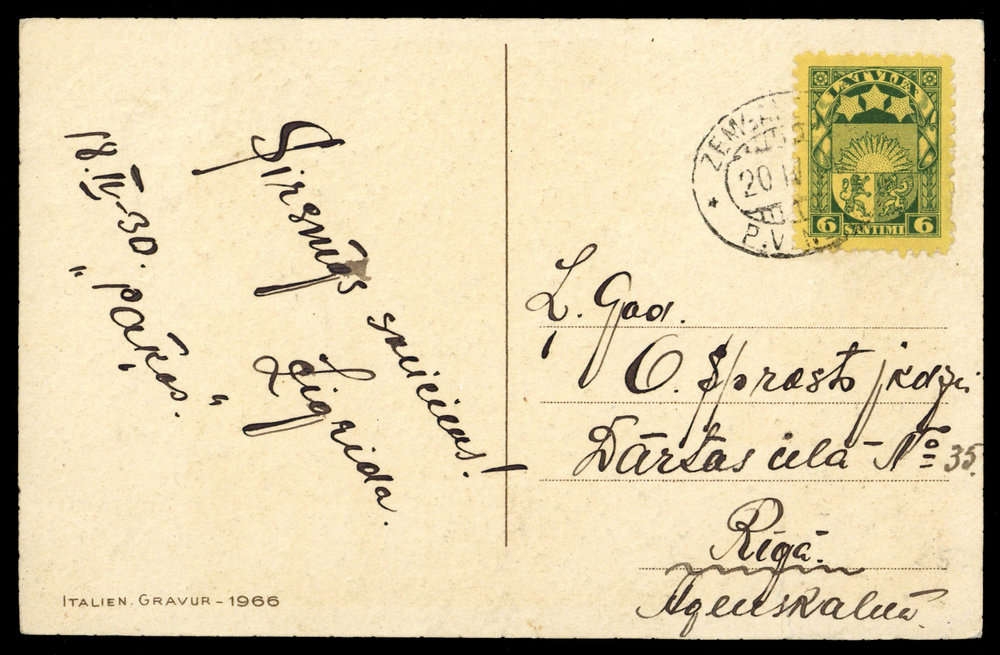 18.IV-30.
"Paķos."
Sirsnīgs
sveiciens!
Zigrida.
ITALIEN. GRAVUR - 1966
LATVIJA
6 SANTIMI 6
20
P.V.N
Ļ. God.
O. Sprosts
Dārtas ielā No 35.
Rīgā.
Agenskalnā.